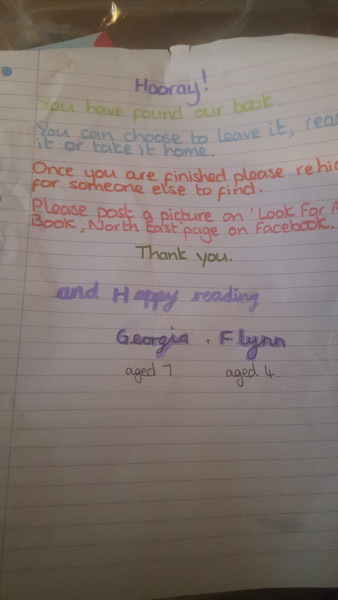 Hooray!
You have found our book.
You can choose to leave it, read
it or take it home.
Once you are finished please rehid
for someone else to find.
Please post a picture on 'Look For A
Book, North East page on Facebook.
Thank you.
and Happy reading
Georgia + Flynn
aged 7 aged 4.